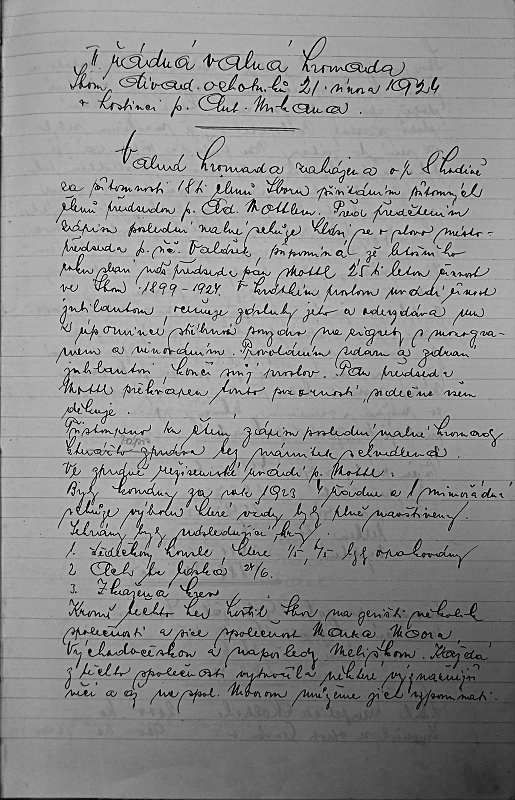 II řádná valná hromada
Sboru divad. ochotníků 21. února 1924
v hostinci p. Ant.
Valná hromada zahájena o ½ 8 hodině
za přítomnosti 18ti členů Sboru přivítáním přítomných
členů předsedou p. Ad. Mottlem. Před předčtením
zápisu poslední valné schůze hlásí se o slovo místo-
předseda p. Valášek, připomíná že letošního
roku slaví náš předseda pan Mottl 25ti letou činnost
ve Sboru 1899-1924. V krátkém proslovu uvádí činnost
jubilantovu, oceňuje zásluhy jeho a odevzdává mu
upomínce, stříbrné pouzdro na cigarety s monogra-
mem a věnováním. Provoláním zdaru a
jubilantovi končí svůj proslov. Pan předseda
Mottl překvapen touto pozorností srdečně všem
děkuje.
Přistoupeno ku čtení zápisu poslední valné hromady
zpráva bez námitek schválena.
Ve zprávě režisérské uvádí p. Mottl:
Byly konány za rok 1923 4 řádné a 1 mimořádná
schůze výboru které vždy byly plně navštíveny.
Sehrány byly následující hry:
1. kteře 1/5, 4/5 byly opakovány
2. Ach ta láska 24/6.
3. Zkažená krev
Kromě těchto her hostil Sbor na jevišti několik
společností a sice společnost Marka,
Východočeskou a naposledy Melíškovu. Každá
z těchto společností vytvořila některé význačnější
věci a až na spol. můžeme jich vzpomínati.